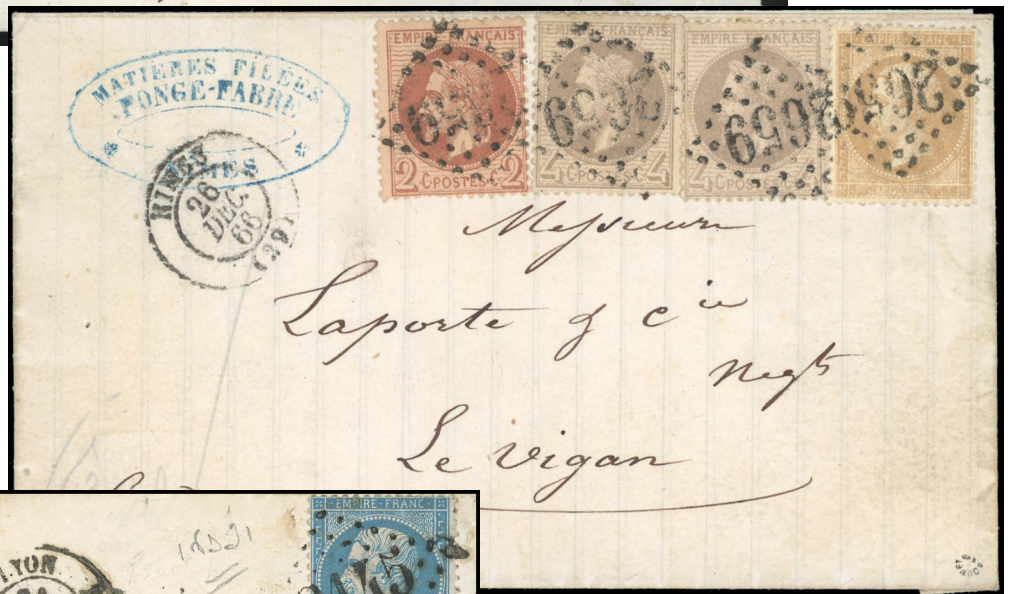 MATIERES FILÉES
PONGE-FABRE
NIMES
NIMES
26
DEC
66
(29)
EMPIRE FRANÇAIS
2 C·POSTES·C 2
EMPIRE FRANÇAIS
4 C·POSTES·C 4
EMPIRE FRANÇAIS
4 C·POSTES·C 4
EMPIRE FRANC
2659
2659
2659
2659
Messieurs
Laporte & Cie
Negts
Le Vigan
LYON
EMPIRE·FRANC
2145